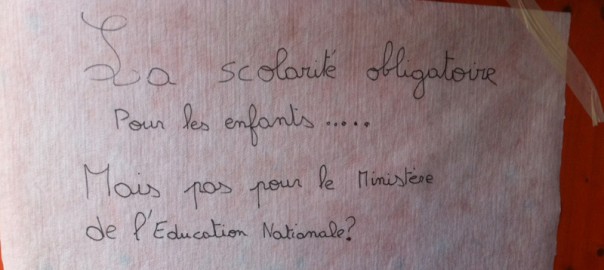 La scolarité obligatoire
Pour les enfants.....
Mais pas pour le Ministère
de l'Education Nationale?